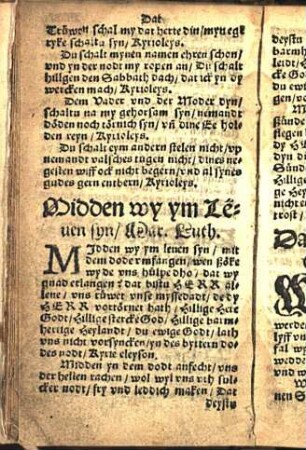 Dat
Trůwen schal my dat herte din/ myn egk
ryke schaltu syn/ Kyrioleys.
Du schalt mynen namen ehren schon/
vnd yn der nodt my ropen an/ Du schalt
hilligen den Sabbath dach/ dat ick yn dy
wercken mach/ Kyrioleys.
Dem Vader vnd der Moder dyn/
schaltu na my gehorsam syn/ nemandt
dőden noch tőrnich syn/ vñ dine Ee holden
reyn/ Kyrioleys.
Du schalt eym andern stelen nicht/ vp
nemandt valsches tůgen nicht/ dines negesten
wiff ock nicht begern/ vnd al synes
gudes gern entbern/ Kyrioleys.
Midden wy ym Lē-
uen syn/ Mar. Luth.
MIdden wy ym leuen syn/ mit
dem dode vmfangen/ wen sőke
wy de vns hůlpe dho/ dat wy
gnad erlangen? dat bistu HERR allene/
vns růwet vnse myssedadt/ de dy
HERR vortőrnet hath/ Hillige Here
Godt/ Hillige stercke God/ Hillige barmhertige
Heylandt/ du ewige Godt/ lath
vns nicht vorsyncken/ yn des byttern dodes
nodt/ Kyrie eleyson.
Midden yn dem dodt anfecht/ vns
der hellen rachen/ wol wyl vns vth sulcker
nodt/ fry vnd leddich maken/ Dat
deystu